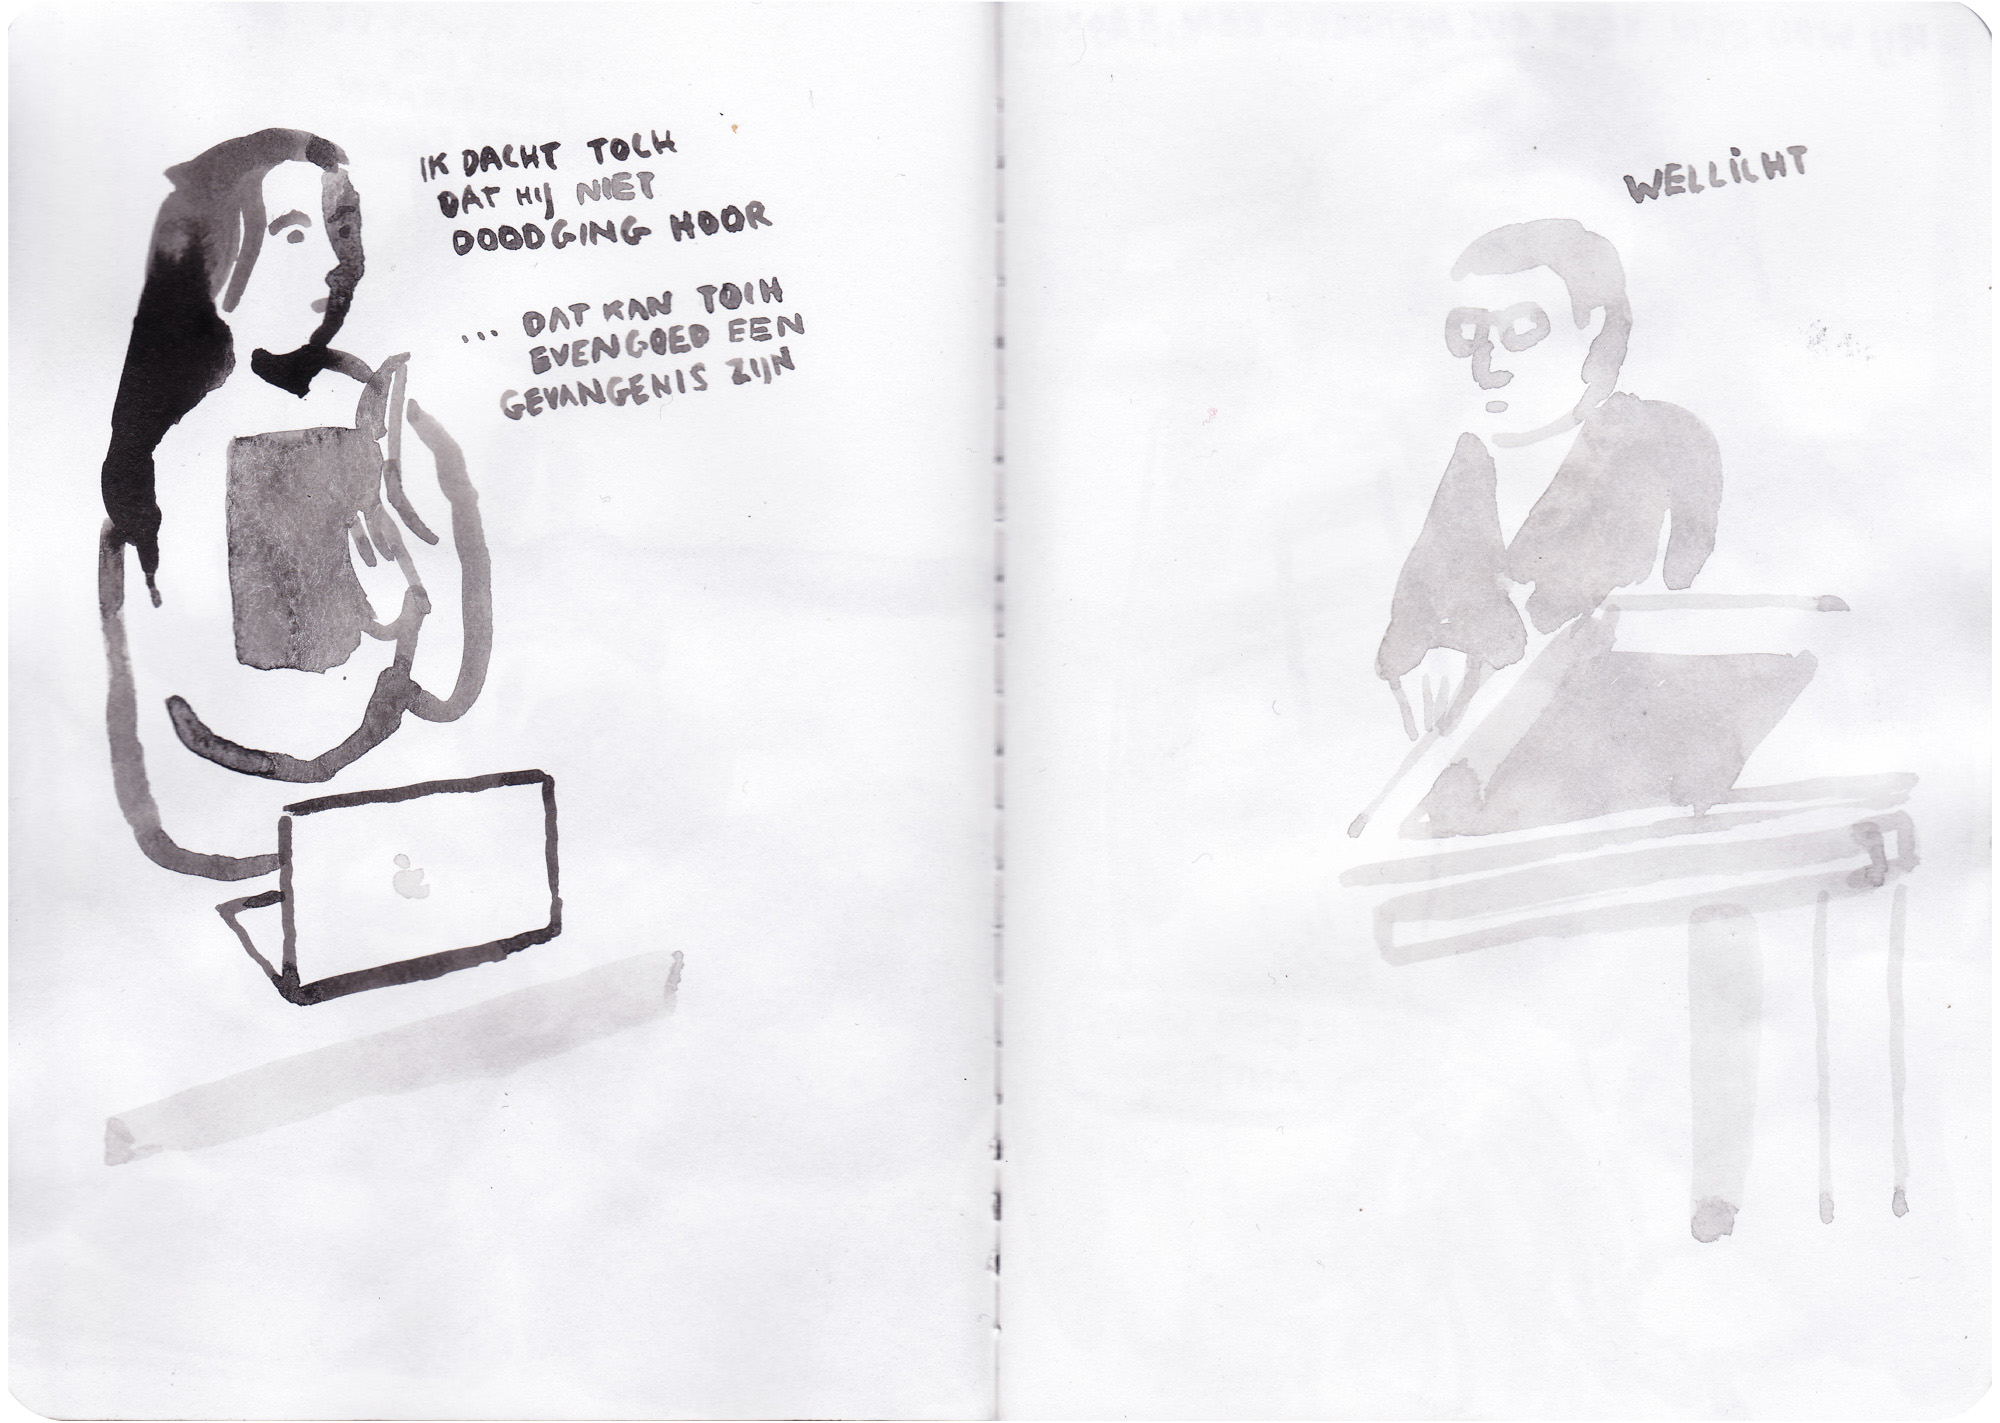 IK DACHT TOCH
DAT HIJ NIET
DOODGING HOOR
... DAT KAN TOCH
EVENGOED EEN
GEVANGENIS ZIJN
WELLICHT